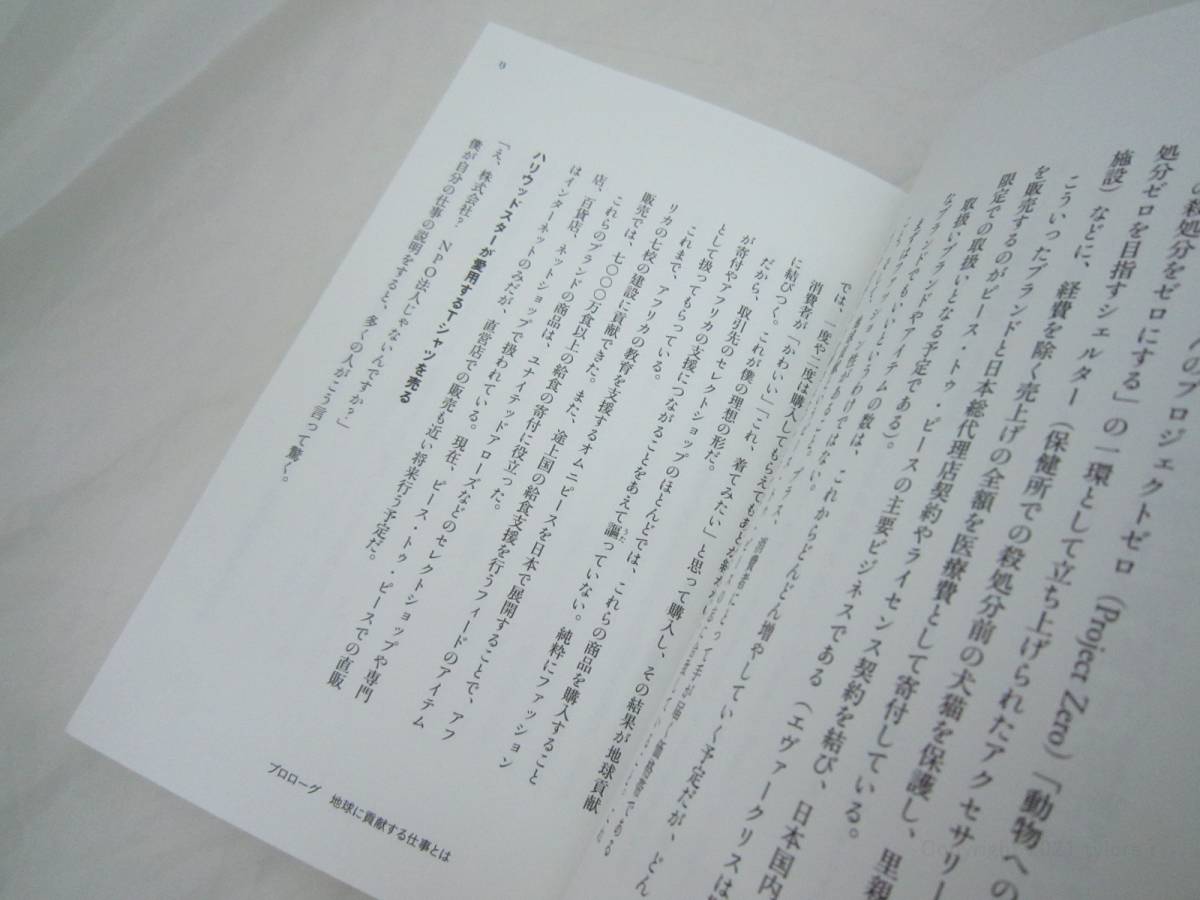 の殺処分をゼロにする」の一環として立ち上げられたアクセサリー
へのプロジェクトゼロ（Project Zero）「動物への
処分ゼロを目指すシェルター（保健所での殺処分前の犬猫を保護し、里親
施設）などに、経費を除く売上げの全額を医療費として寄付している。
こういったブランドと日本総代理店契約やライセンス契約を結び、日本国内
を販売するのがピース・トゥ・ピースの主要ビジネスである（エヴァークリスは
限定での取扱いとなる予定である）。
取扱いブランドやアイテムの数は、これからどんどん増やしていく予定だが、どん
なブランドでもいいというわけではない。
では、一度や二度は購入してもらえても
消費者が「かわいい」「これ、着てみたい」と思って購入し、その結果が地球貢献
に結びつく。これが僕の理想の形だ。
だから、取引先のセレクトショップのほとんどでは、これらの商品を購入すること
が寄付やアフリカの支援につながることをあえて謳っていない。純粋にファッション
として扱ってもらっている。
これまで、アフリカの教育を支援するオムニピースを日本で展開することで、アフ
リカの七校の建設に貢献できた。また、途上国の給食支援を行うフィードのアイテム
販売では、七〇〇〇万食以上の給食の寄付に役立った。
これらのブランドの商品は、ユナイテッドアローズなどのセレクトショップや専門
店、百貨店、ネットショップで扱われている。現在、ピース・トゥ・ピースでの直販
はインターネットのみだが、直営店での販売も近い将来行う予定だ。
ハリウッドスターが愛用するTシャツを売る
「え、株式会社？　NPO法人じゃないんですか？」
僕が自分の仕事の説明をすると、多くの人がこう言って驚く。
13
プロローグ　地球に貢献する仕事とは